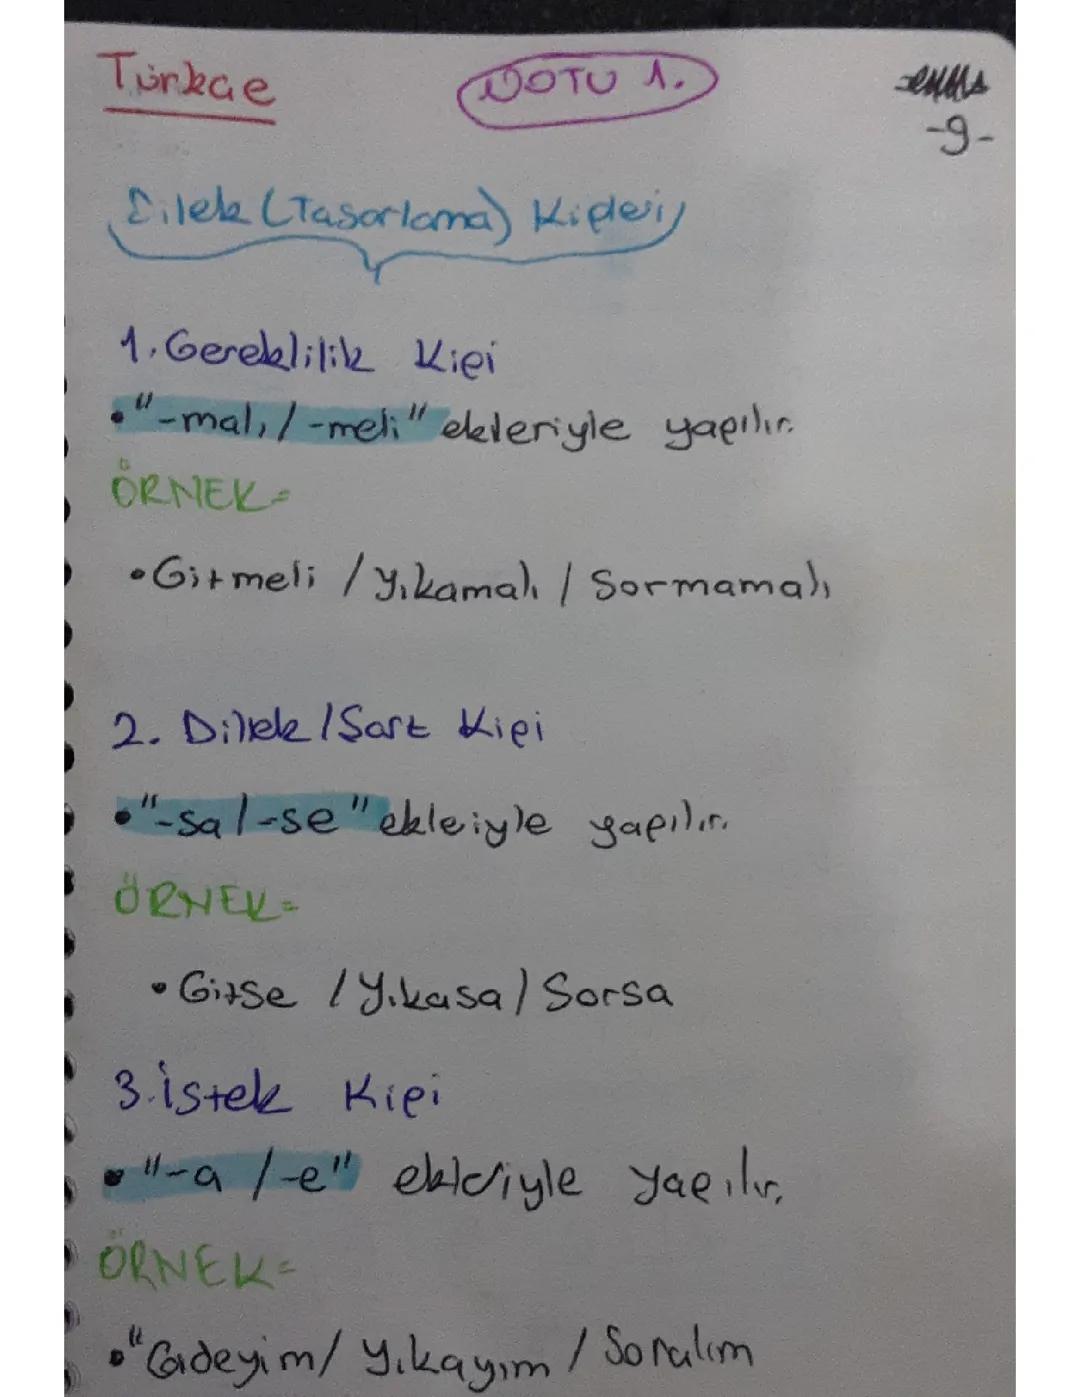 Türkçe
NOTU 1.
-9-
Dilek (Tasarlama) Kipleri
1. Gereklilik Kipi
• "-malı / -meli" ekleriyle yapılır.
ÖRNEK=
• Gitmeli / Yıkamalı / Sormamalı
2. Dilek / Şart Kipi
• "-sa / -se" ekleiyle yapılır.
ÖRNEK=
• Gitse / Yıkasa / Sorsa
3. İstek Kipi
• "-a / -e" ekleriyle yapılır.
ÖRNEK=
• "Gideyim / Yıkayım / Soralım